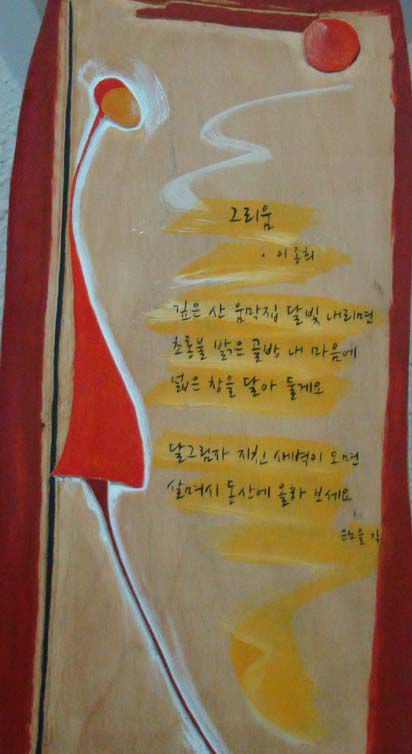 그리움
· 이종희
깊은 산 움막집 달빛 내리면
초롱불 밝은 골방 내 마음에
넓은 창을 달아 둘게요
달그림자 지친 새벽이 오면
살며시 돈산에 올라 보세요